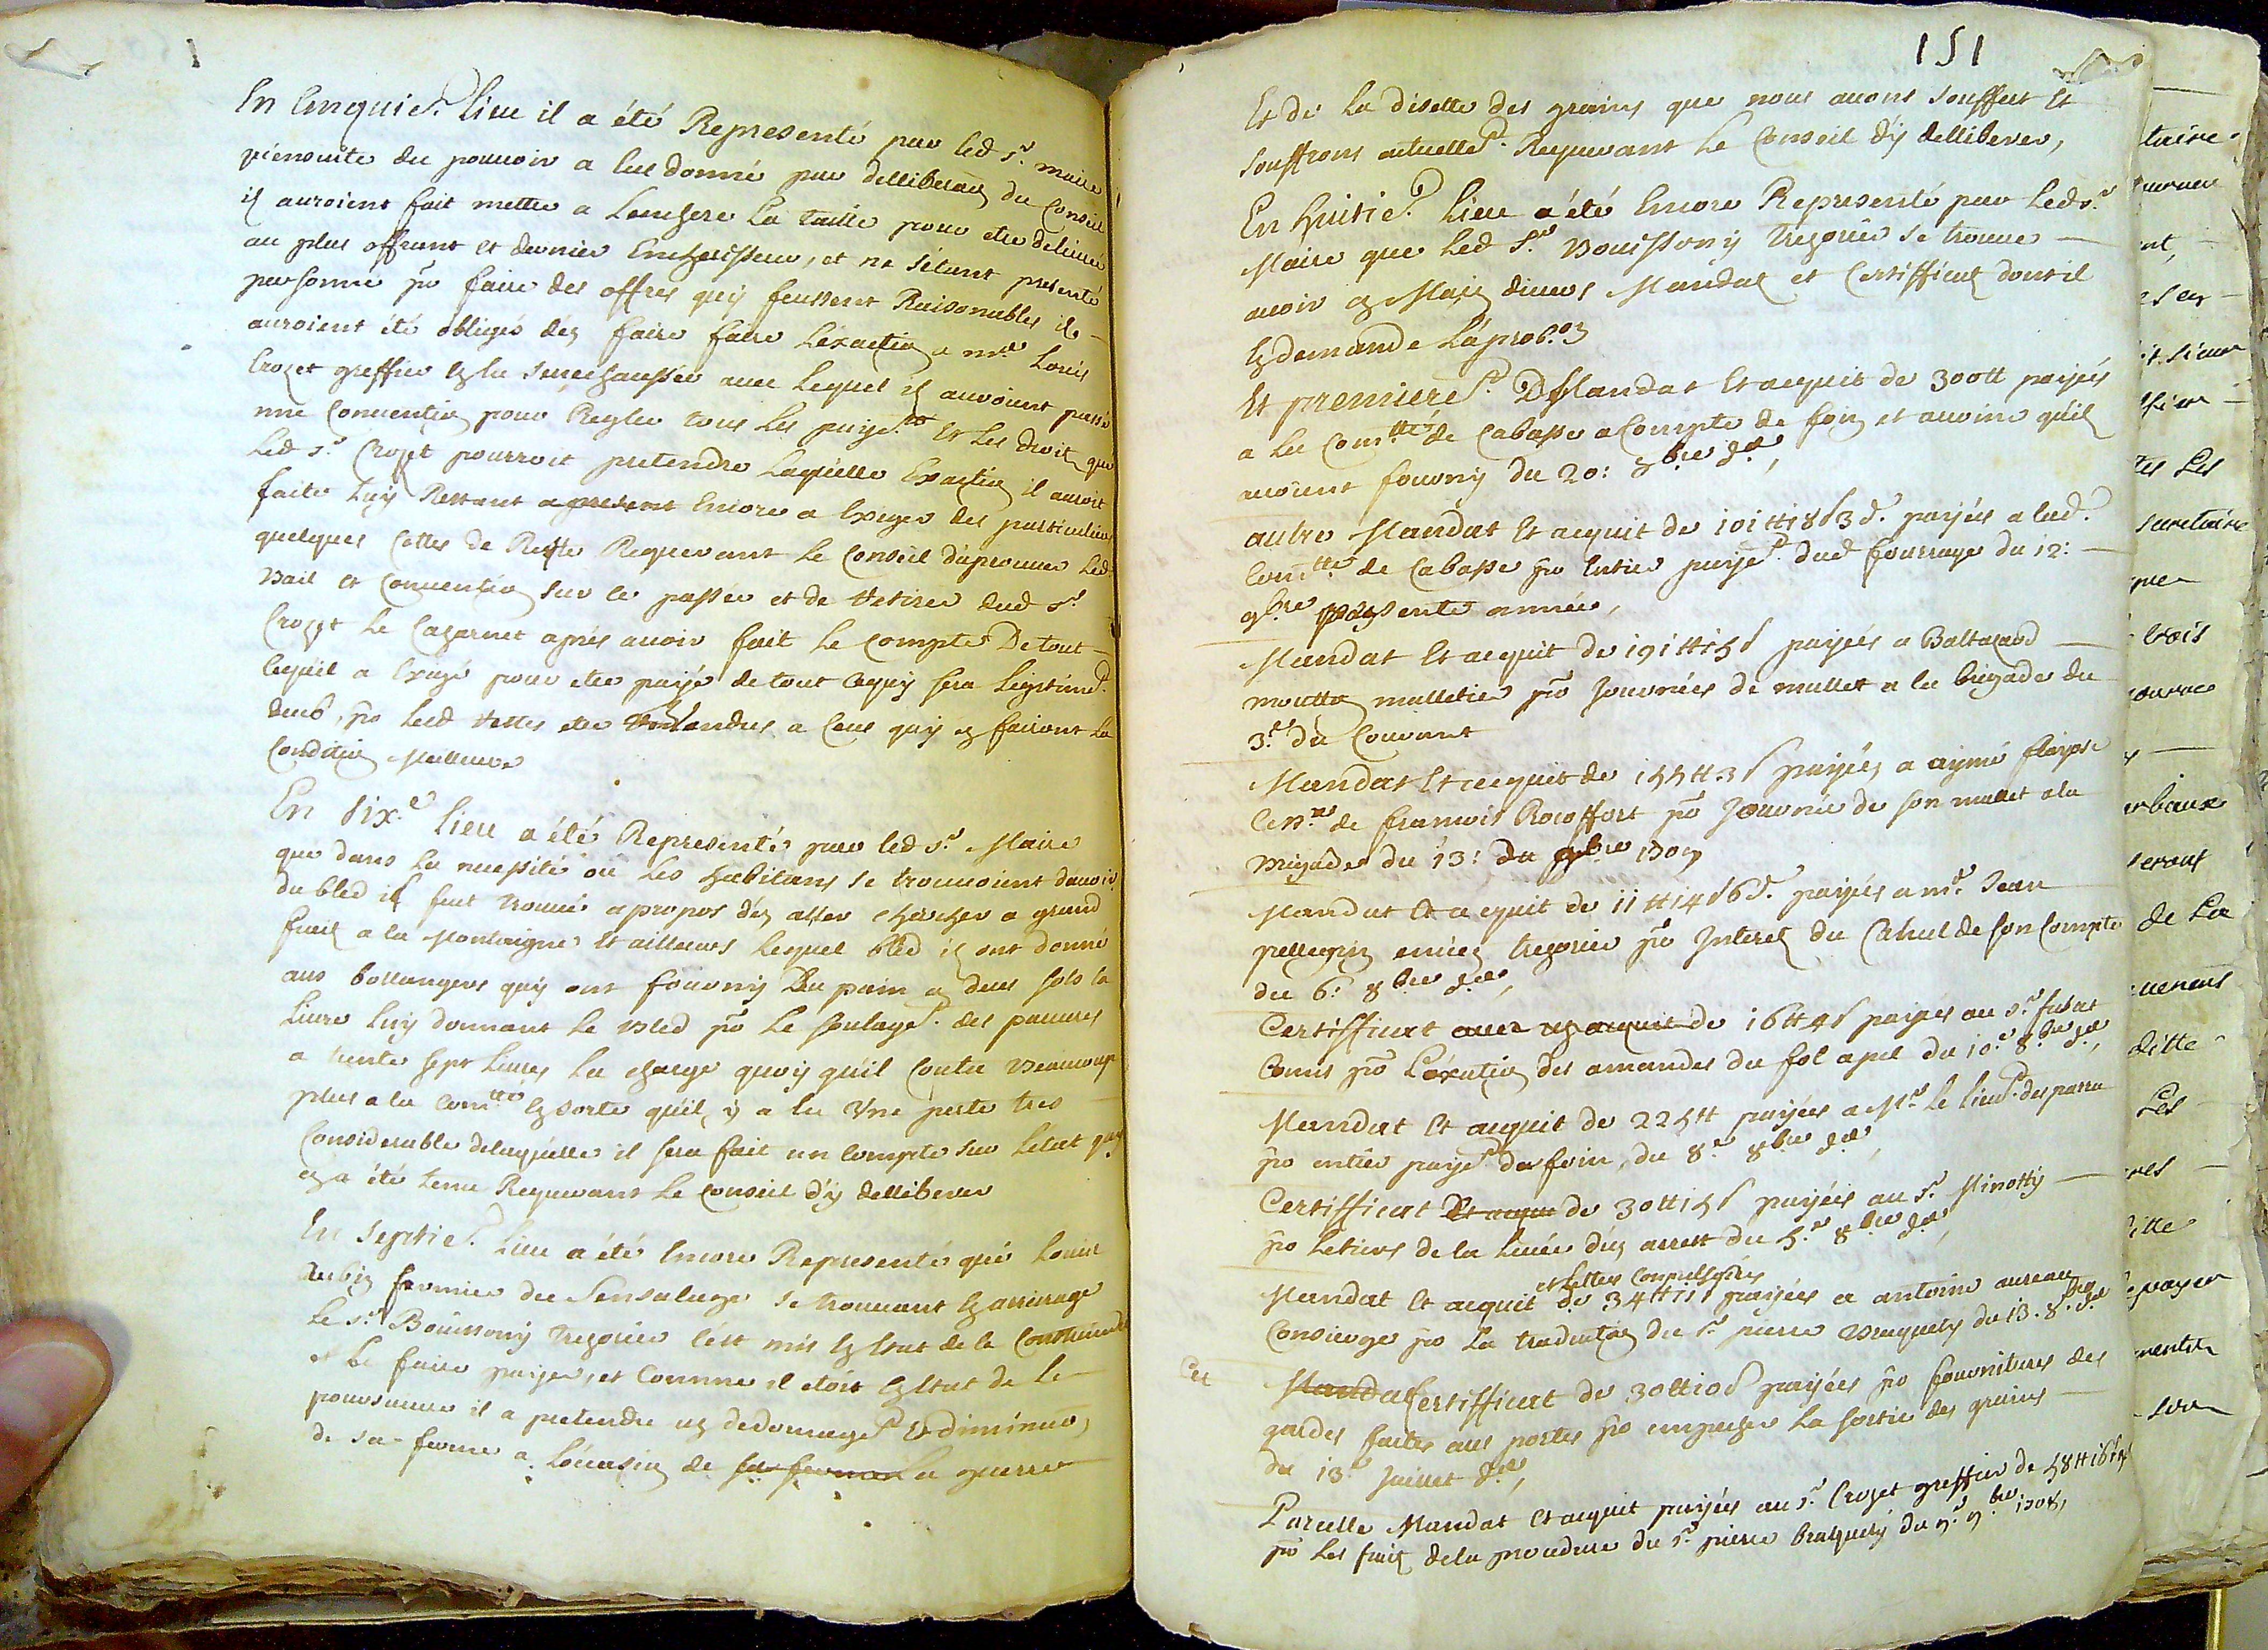 En Cinquie.t lieu il a été Representé par led s.r maire
qu'ensuite du pouvoir a luy donné par delliberaõn du Conseil
il auroient fait mettre a Lenchere La taille pour etre delivrée
au plus offrant et dernier Encherisseur, et ne s'étant presenté
personne po faire des offres quy feussent Raisonables ils
auroient été obligés d'en faire faire L'exaction a m.e Louis
Crozet greffier en la seneschaussée avec Lequel il auroient passé
une Convention pour Regler tous Les payem.ts Et Les droits que
Led s.r Crozet pourroit pretendre Laquelle Exaction il auroit
faite Luy Restant a present Encore a Exiger des particuliers
quelques Cottes de Reste Requerant Le Conseil d'aprouver Led
Bail et Convention sur ce passée et de Retirer dud s.r
Crozet Le Cazarnet après avoir fait Le Compte De tout
Cequil a Exigé pour etre payé de tout Cequy sera Legitime.t
deub, po Lesd Restes etre Vandues a Ceux quy en fairont La
Condition Meilleure
En Six.e Lieu a été Representé par led s.r Maire
que dans La necessité où Les habitans se trouvoient d'avoir
du bled il feut trouvé apropos d'en aller chercher a grand
frais a la Montaigne et ailleurs Lequel bled il ont donné
aux boullangers quy ont fourny Du pain a deux sols la
Livre Luy donnant Le Bled po Le soulage.t des pauvres
a trente sept Livres La charge quoy qu'il Coutte Beaucoup
plus a la Com.tté En sorte qu'il y a Eu Vne perte tres
Considerable delaquelle il sera fait un Compte sur L'etat quy
en a été tenu Requerant Le Conseil d'y delliberer
En Septie.t Lieu a été Encore Representé que Louis
Aubin fermier du Sensalage se trouvant En arrirage
Le s.r Bouissony Trezorier s'est mis En Etat de le Contraindre
et Le faire payer, et Comme il etoit En Etat de le
poursuivre il a pretendu un dedomage.t Et diminuõn
de sa ferme a L'ocasion de sa ferme La guerre
151
Et de La disette des grains que nous avons souffert Et
souffrons actuelle.t Requerant Le Conseil d'y delliberer,
En huitie.t Lieu a été Encore Representé par Led s.r
Maire que Led S.r Bouissony Trezorier se trouve
avoir en Main divers Mandats et Certifficats dont il
En demande L'aprob.on
Et premiere.t Mandat Et acquit de 300tt payées
a La Com.tté de Cabasse a Compte de foin et avoine qu'ils
avoient fourny du 20: 7bre d.e,
autre Mandat Et acquit de 101tt18s3d. payées a lad.
Com.tté de Cabasse po Entier paye.t dud fourrage du 12:
9bre presente année,
Mandat Et acquit de 191tt15s payées a Baltazard
moutton mulletier po Journées de mullet a la brigade du
3.e du Courant
Mandat Et acquit de 155tt3s payées a aymé
de francois Rocoffort po Journée de son mullet a la
Brigade du 13: du 9bre 1709
Mandat Et acquit de 11tt14s6d. payées a m.e Jean
pellegrin encien trezorier po Interets du Calcul de son Compte
du 6.e 8bre d.e,
Certifficat avec un acquit de 16tt4s payées au s.r
Comis po L'exaction des amandes du fol apel du 10.e 8bre d.e,
Mandat Et acquit de 225tt payées a Mr le
po entier paye.t du foin, du 8.e 8bre d.e,
Certifficat Et acquit de 30tt15s payées au s.r Minotty
po Letiers de la Levée d'un arrest du 5.e 8bre d.e,
et Lettres Compulsoires
Mandat et acquit de 34tt11s payées a antoine aureau
Concierge po La traduction du s.r pierre Braquety du 13. 8bre d.e
Cer Mandat Certifficat de 30tt10s payées po fournitures des
gardes faites aux portes po empecher La sortie des grains
du 13.e Juillet d.e,
Parcelle Mandat Et acquit payées au s.r Crozet greffier de 58tt16s
po Les frais dela procedure du s.r pierre braquety du 9.e 9bre 1708,